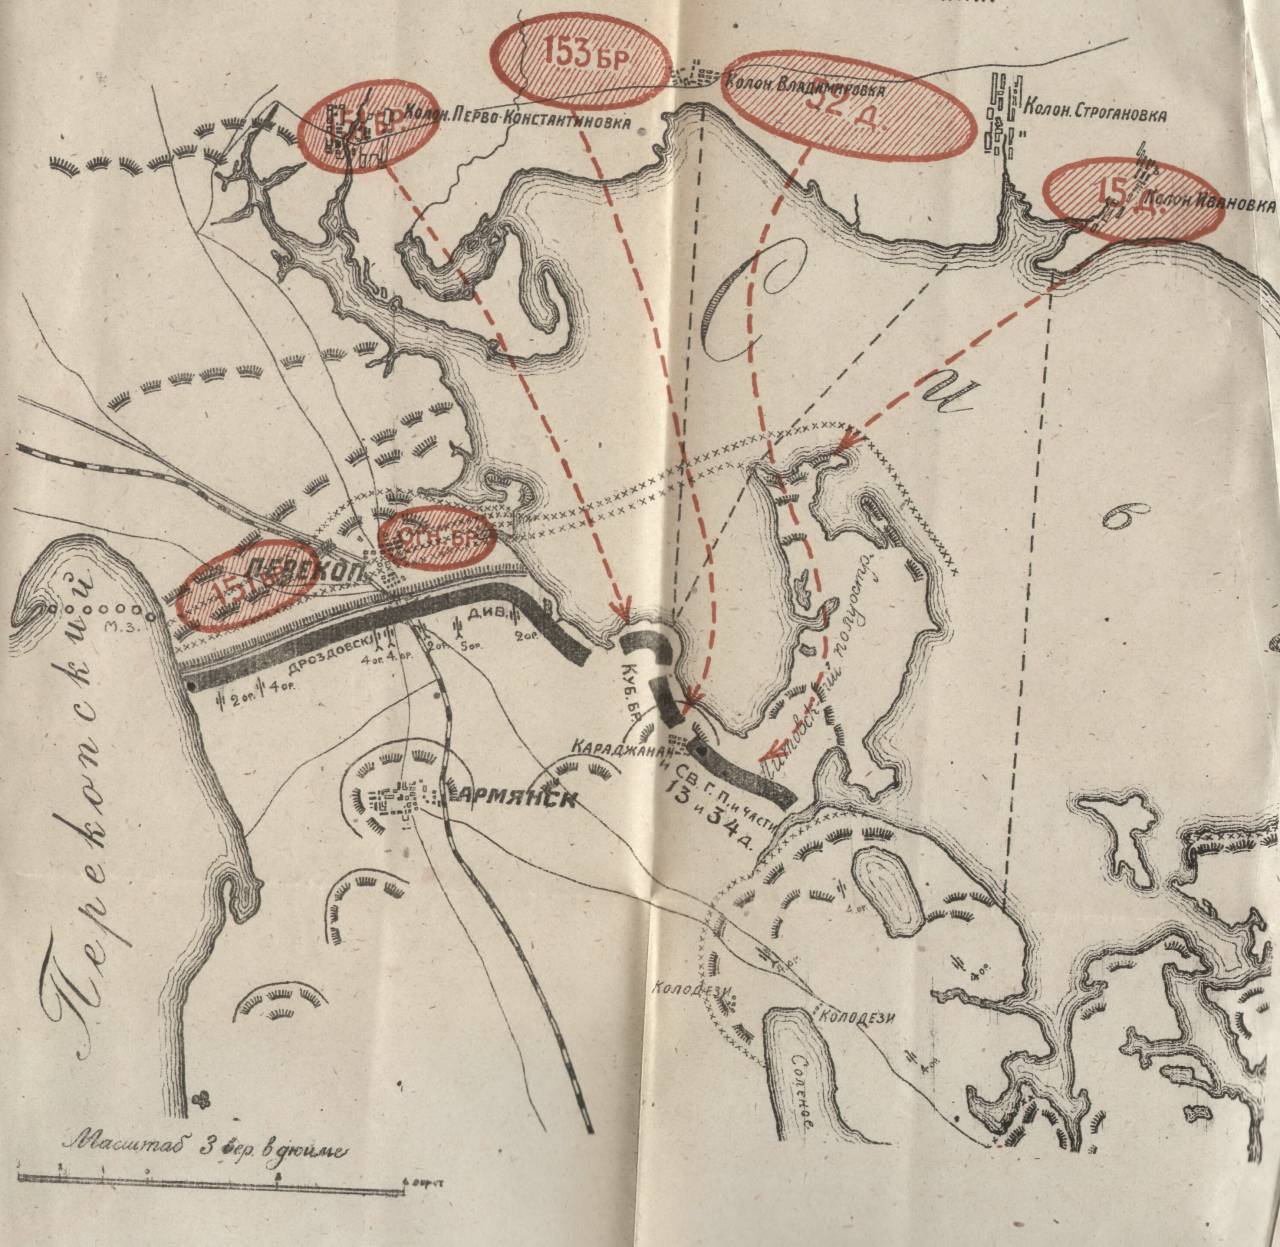 153 БР.
КОЛОН. ВЛАДИМИРОВКА
52 Д.
КОЛОН. СТРОГАНОВКА
БР.
КОЛОН. ПЕРВО-КОНСТАНТИНОВКА
15 Д.
КОЛОН. ИВАНОВКА
С
и
ОГН. БР.
ПЕРЕКОП
М.З.
ДРОЗДОВСК.
ДИВ.
2 ОР.
5 ОР.
2 ОР.
4 ОР.
4 ОР.
2 ОР.
4 ОР.
Перекопский
КУБ. БР.
Литовский полуостр.
КАРАДЖАНАЙ
И СВ. Г. П. И ЧАСТИ
13 и 34 Д.
АРМЯНСК
4 ОР.
КОЛОДЕЗИ
КОЛОДЕЗИ
4 ОР.
Соленое
Масштаб 3 вер. в дюйме